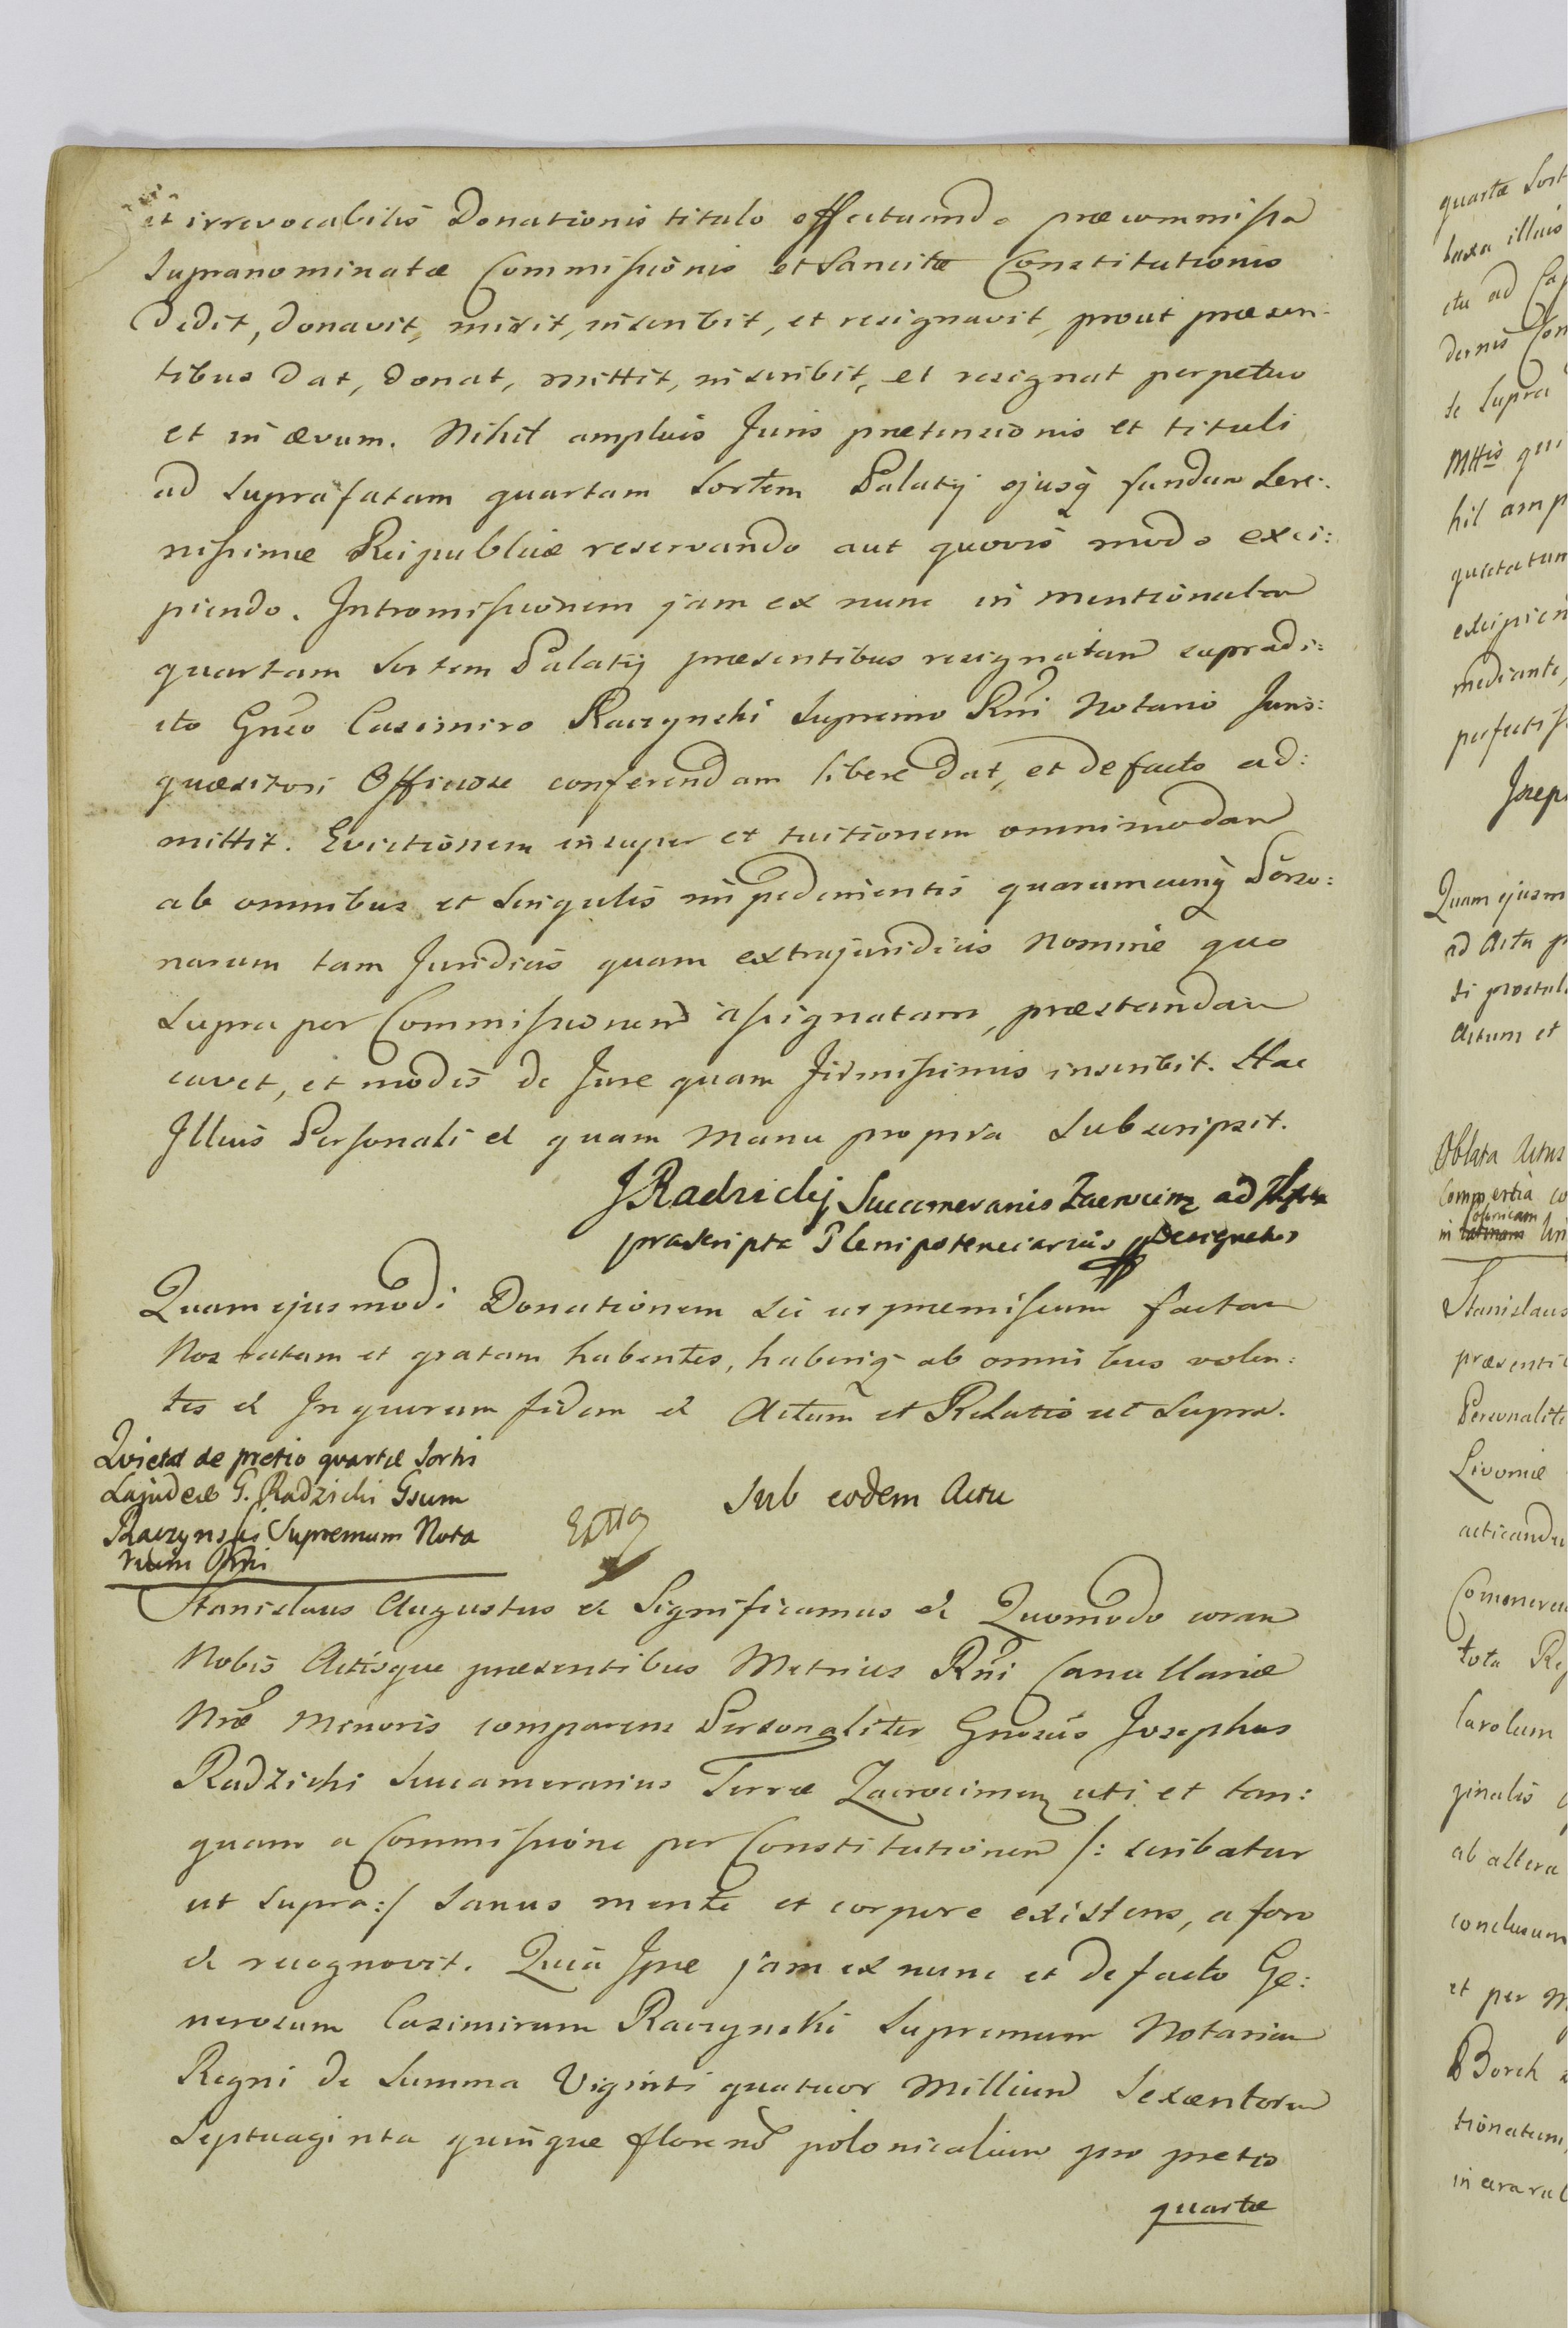 et irrevocabilis Donationis titulo effectuando præcommissa
Supranominatæ Commissionis et Sancitæ Constitutionis
dedit, donavit, misit, inscribit, et resignavit, prout præsen-
tibus dat, donat, mittit, inscribit, et resignat perpetuo
et in ævum. Nihil amplius Juris prætensionis et tituli
ad suprafatam quartam Sortem Palatij ejusq fundum Sere:
nissimæ Reipublicæ reservando aut quovis modo exci:
piendo. Intromissionem jam ex nunc in mentionatam
quartam Sortem Palatij præsentibus resignatam supradi:
cto Gneo Casimiro Raczynski Supremo Rni Notario Juris:
quæsitori Officiose conferendam libere dat, et de facto ad:
mittit. Evictionem insuper et tuitionem omnimodam
ab omnibus et Singulis impedimentis quarumcunq Perso:
narum tam Juridicis quam extrajuridicis Nomine quo
Supra per Commissionem assignatam, præstandam
cavet, et modis de Jure quam firmissimis inscribit. Hac
Illius Personali et quam manu propria Subscripsit.
J Radzicky Succameranis Zacrocims ad
præscripta Plenipotenciarius Designatus
Quam ejusmodi Donationem sic ut præmissum factam
Nos ratam et gratam habentes, haberiq ab omnibus volen:
tes et In quorum fidem et Actum et Relatio ut Supra.
Quietat de pretio quartæ Sortis
G. Radzicki Gsum
Raczynski Supremum Nota
rium Rni
Sub eodem Actu
Stanislaus Augustus et Significamus et Quomodo coram
Nobis Actisque præsentibus Metrices Rni Cancellariæ
Nræ Minoris comparens Personaliter Gnosus Josephus
Radzicki Succamerarius Terræ Zacrocimens uti et tan:
quam a Commissione per Constitutionem /: scribatur
ut supra :/ Sanus mente et corpore existens, a foro
et recognovit. Quia Ipse jam ex nunc et de facto Ge:
nerosum Casimirum Raczynski Supremum Notarium
Regni de Summa Viginti quatuor Millium Sexcentorum
Septuaginta quinque florenor polonicalium pro pretio
quartæ
quartæ Sort
taxa illius
ctu ad Cap
dernis Con
te Supra
Mttis qui
hil amp
quietatum
excipien
mediante,
perfectiss
Josep
Quam ejusm
ad Acta p
si postul
Actum et
Oblata Actus
Compertia co
polonicam
in latinam
Stanislaus
præsenti
Personalite
Livoniæ
acticandu
Comonere
tota Re
Carolum
ginalis
ab altera
conclusum
et per M
Borch
tionatum,
in ceraru